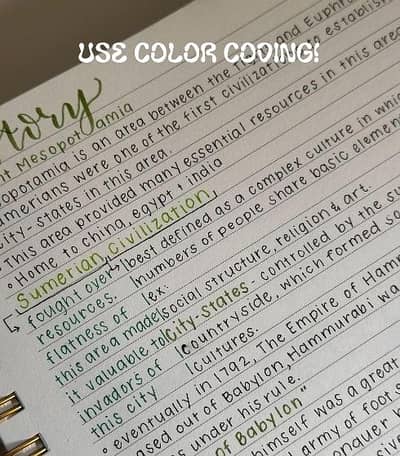 USE COLOR CODING!
tory
nt Mesopotamia
opotamia is an area between the and Euphra
umerians were one of the first civilizations to establish
city-states in this area.
• This area provided many essential resources in this area
• Home to china, egypt + india
Sumerian Civilization
↳ fought over best defined as a complex culture in which
resources. numbers of people share basic elemen
flatness of ex:
this area made social structure, religion & art.
it valuable to City-States - controlled by the su
invadors of countryside, which formed so
this city cultures.
• eventually in 1792, The Empire of Hamm
ased out of Babylon, Hammurabi wa
s under his rule.
of Babylon"
himself was a great
army of foot s
onquer b